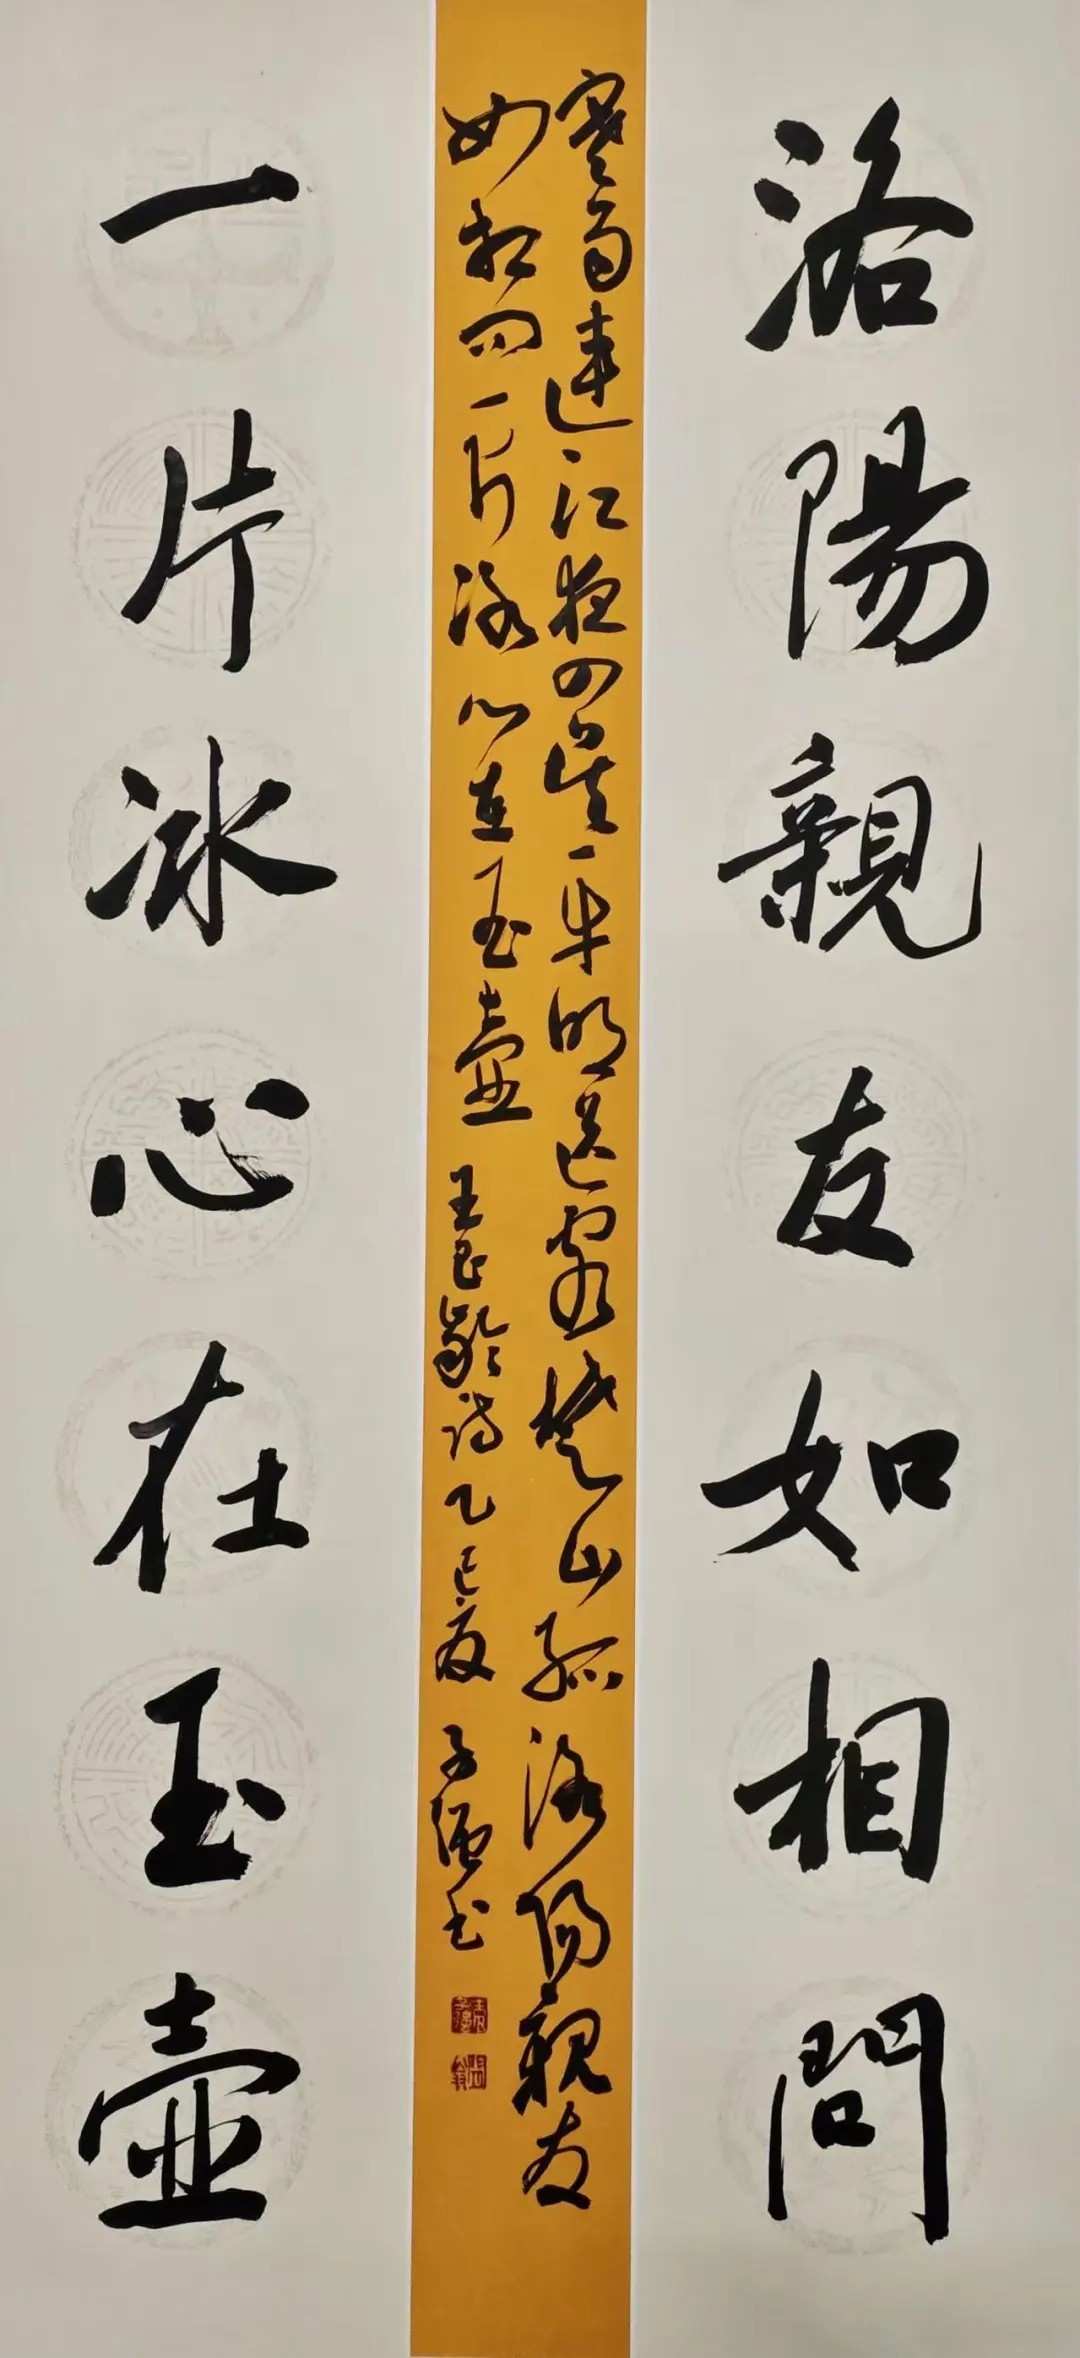 洛陽親友如相問
寒雨連江夜入吳平明送客楚山孤洛陽親友
如相問一片冰心在玉壺 王昌齡詩乙巳夏 子強書
一片冰心在玉壺